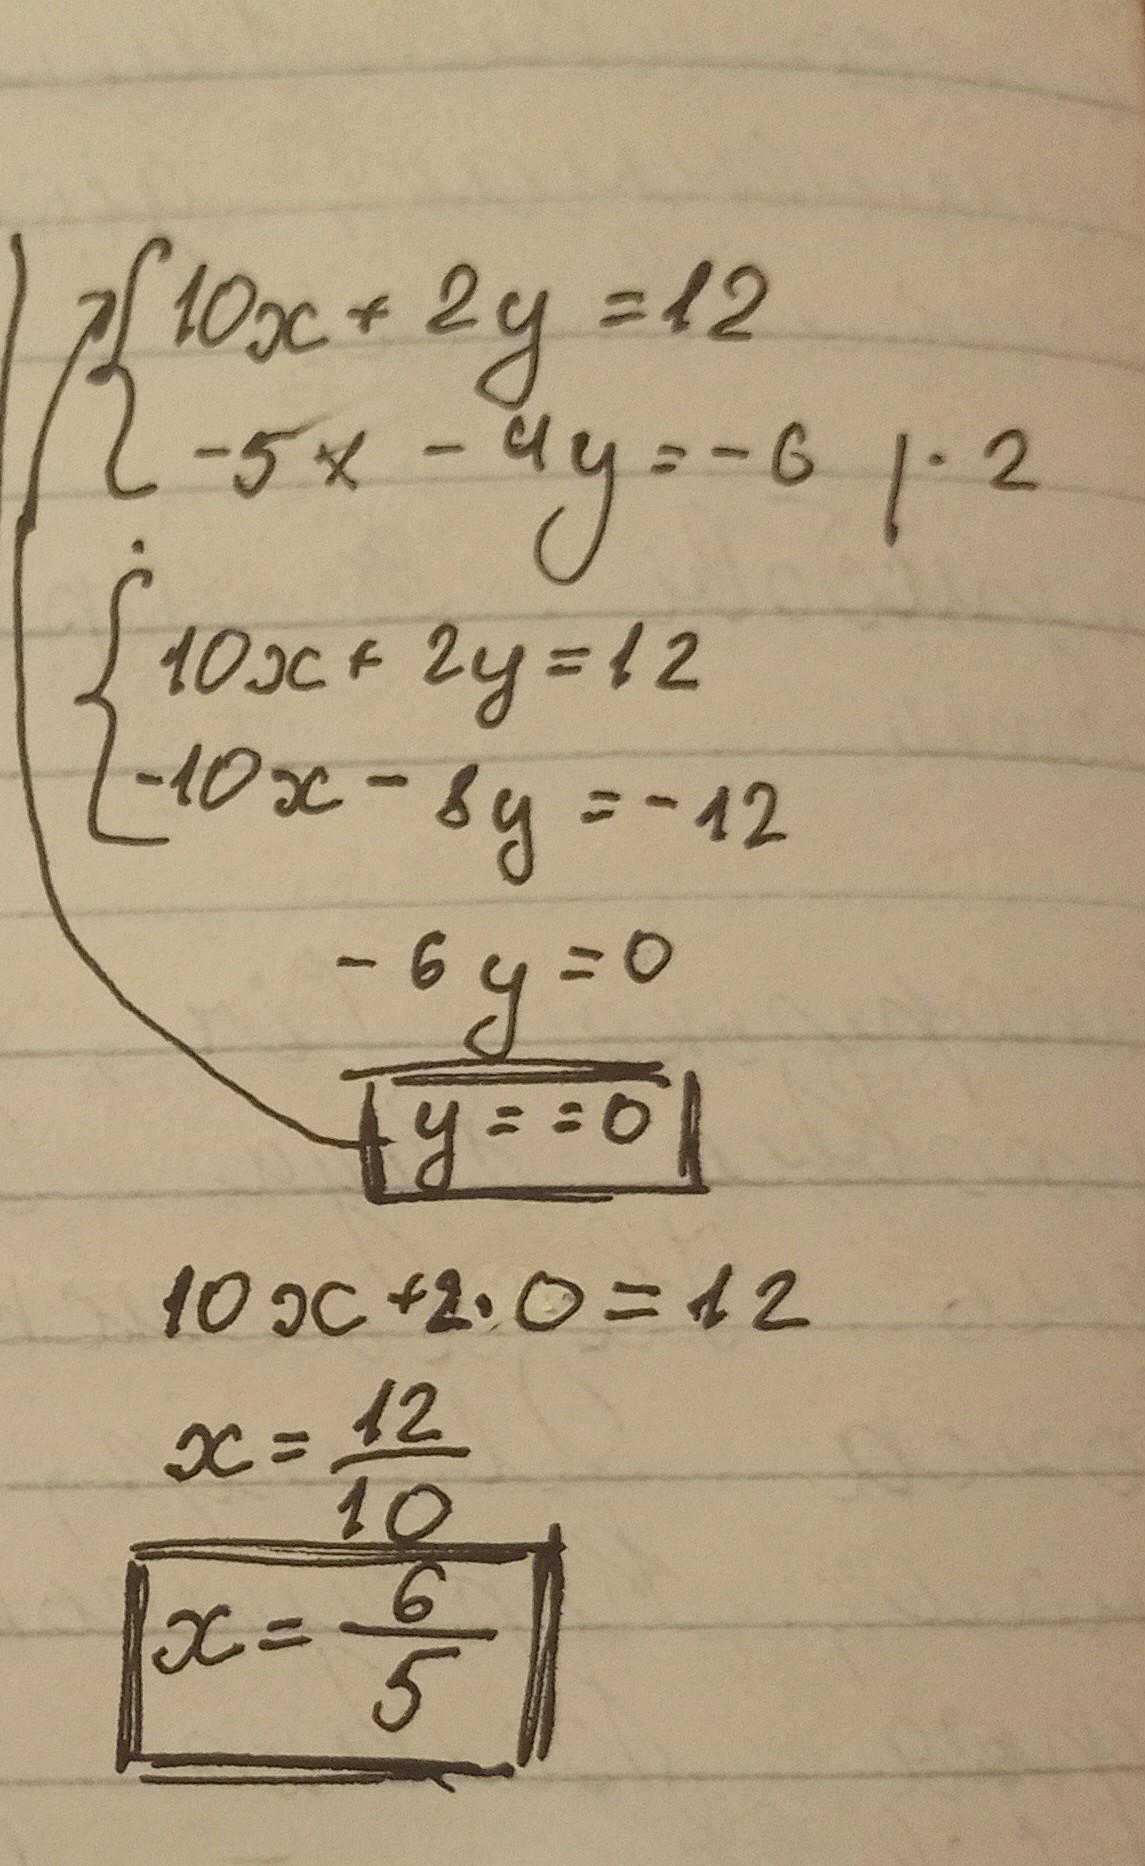 10x + 2y = 12
-5x - 4y = -6 | · 2
10x + 2y = 12
-10x - 8y = -12
-6y = 0
y = = 0
10x + 2 · 0 = 12
x = 12/10
x = 6/5